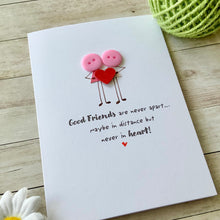 Good Friends are never apart...
maybe in distance but
never in heart!